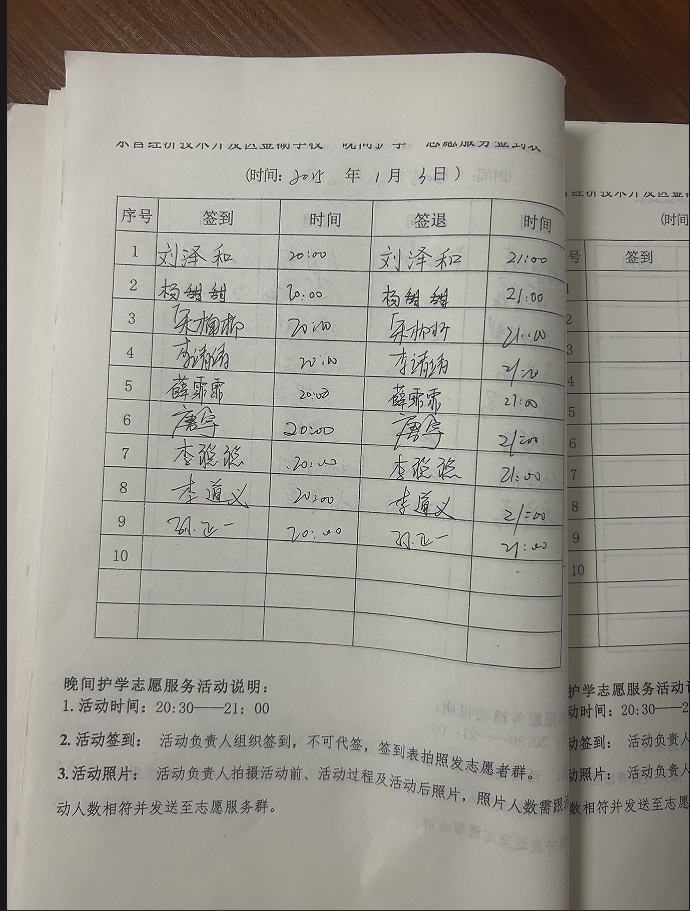 (时间：2015 年 1 月 3 日)
序号 签到 时间 签退 时间
1 刘泽和 20:00 刘泽和 21:00
2 杨甜甜 20:00 杨甜甜 21:00
3 20:00 21:00
4 李 20:00 李 21:00
5 薛霏霏 20:00 薛霏霏 21:00
6 唐宇 20:00 唐宇 21:00
7 李聪聪 20:00 李聪聪 21:00
8 李道义 20:00 李道义 21:00
9 孙正一 20:00 孙正一 21:00
10
晚间护学志愿服务活动说明：
1.活动时间：20:30——21：00
2.活动签到： 活动负责人组织签到，不可代签，签到表拍照发志愿者群。
3.活动照片： 活动负责人拍摄活动前、活动过程及活动后照片，照片人数需跟
动人数相符并发送至志愿服务群。
(时间
号 签到
1
2
3
4
5
6
7
8
9
10
护学志愿服务活动
动时间：20:30—2
动签到： 活动负责人
动照片： 活动负责人
数相符并发送至志愿